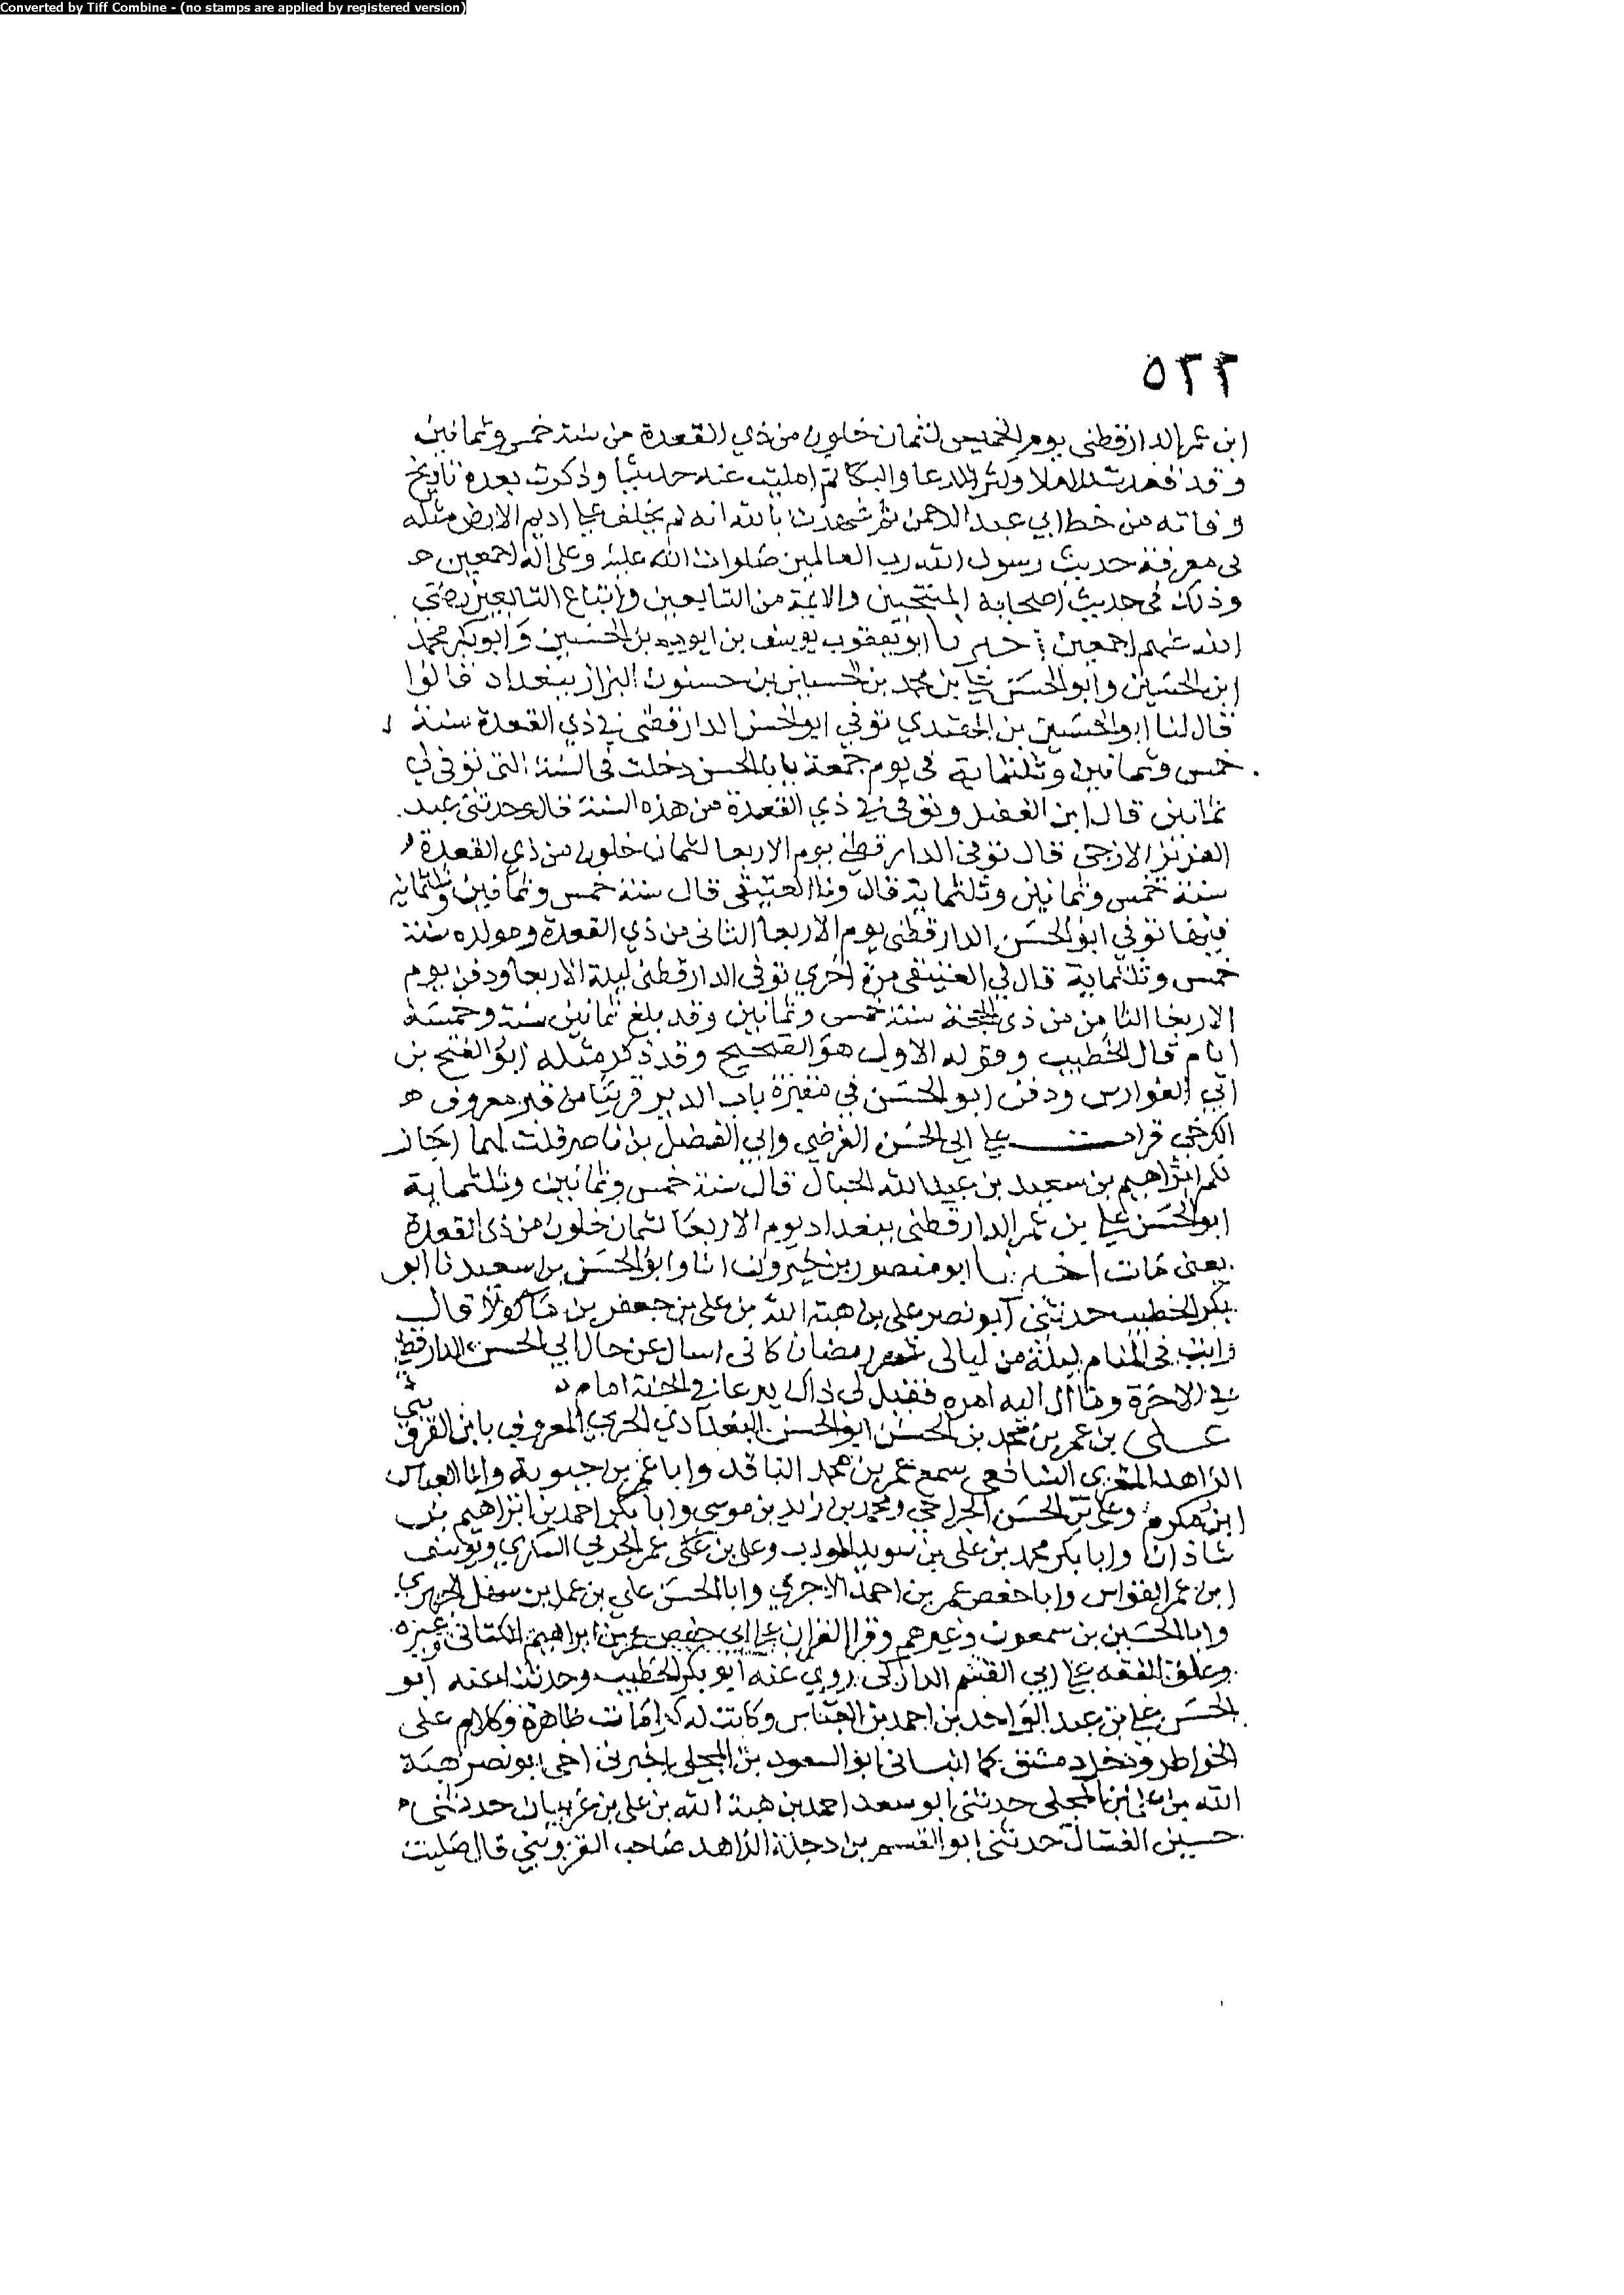 Converted by Tiff Combine - (no stamps are applied by registered version)
٥٢٢
ابن عمر الدارقطنى يوم الخميس لثمان خلون من ذي القعدة من سنة خمس وثمانين
وقد للاملا والدعا والبكا ثم امليت عنه حديثا وذكرت بعده تاريخ
وفاته من خط ابي عبد الرحمن ثم شهدت بالله انه لم يخلف على اديم الارض مثله
فى معرفة حديث رسول الله رب العالمين صلوات الله عليه وعلى اله اجمعين ه
وذلك فى حديث اصحابه المنتخبين والايمة من التابعين واتباع التابعين رضي
الله عنهم اجمعين اخبرنا ابو يعقوب يوسف بن ايوب بن الحسين وابو بكر محمد
ابن الحسين وابو الحسن على بن محمد بن الحسين بن حسنون البزاز ببغداد قالوا
قال لنا ابو الحسين بن المهتدي توفي ابو الحسن الدارقطنى فى ذي القعدة سنة
خمس وثمانين وثلثماية فى يوم جمعة بابا الحسن دخلت فى السنة التى توفى لي
ثمانين قال ابن الفضل وتوفى فى ذي القعدة من هذه السنة قال وحدثنى عبد
العزيز الازجى قال توفى الدارقطني يوم الاربعا لثمان خلون من ذي القعدة
سنة خمس وثمانين وثلثماية قال ونا العتيقى قال سنة خمس وثمانين وثلثماية
فيها توفي ابو الحسن الدارقطنى يوم الاربعا الثانى من ذي القعدة ومولده سنة
خمس وثلثماية قال لي العتيقى مرة اخري توفى الدارقطنى ليلة الاربعا ودفن يوم
الاربعا الثامن من ذى الحجة سنة خمس وثمانين وقد بلغ ثمانين سنة وخمسة
ايام قال الخطيب وقوله الاول هو الصحيح وقد ذكر مثله ابو الفتح بن
ابي الفوارس ودفن ابو الحسن في مقبرة باب الدير قريبا من قبر معروف ه
الكرخي قرات على ابي الحسن الفرضي وابي الفضل بن ناصر قلت لهما اجاز
لكم ابراهيم بن سعيد بن عبد الله الحبال قال سنة خمس وثمانين وثلثماية
ابو الحسن على بن عمر الدارقطنى ببغداد يوم الاربعا لثمان خلون من ذى القعدة
يعنى مات اخبرنا ابو منصور بن خيرون انا وابو الحسن بن سعيد نا ابو
بكر الخطيب حدثني ابو نصر على بن هبة الله بن على بن جعفر بن ماكولا قال
رايت فى المنام ليلة من ليالى شهر رمضان كانى اسال عن حال ابي الحسن الدارقطني
فى الاخرة وما ال اليه امره فقيل لى ذاك يدعا فى الجنة امام
على بن عمر بن محمد بن الحسن ابو الحسن البغدادي الحربي المعروف بابن القزويني
الزاهد المقرى الشافعى سمع عمر بن محمد الناقد وابا عمر بن حيوية وابا العباس
ابن مكرم وعلى بن الحسن الجراحي ومحمد بن زيد بن موسى وابا بكر احمد بن ابراهيم بن
شاذان وابا بكر محمد بن على بن سويد المودب وعلى بن عمر الحربي السكري ويوسف
ابن عمر القواس وابا حفص عمر بن احمد الاجري وابا الحسن علي بن عمر بن سهل الحريري
وابا الحسين بن سمعون وغيرهم وقرا القران على ابي حفص عمر بن ابراهيم الكتانى وغيره
وعلق الفقه على ابي القسم الداركى روي عنه ابو بكر الخطيب وحدثنا عنه ابو
الحسن على بن عبد الواحد بن احمد بن العباس وكانت له كرامات ظاهرة وكلام على
الخواطر ودخل دمشق كما انبانى ابو السعود بن المجلى اخبرنى اخى ابو نصر هبة
الله بن على بن المجلى حدثنى ابو سعد احمد بن هبة الله بن على بن عربيان حدثنى
حسين الغسال حدثنى ابو القسم بن دجلة الزاهد صاحب القزويني قال صليت